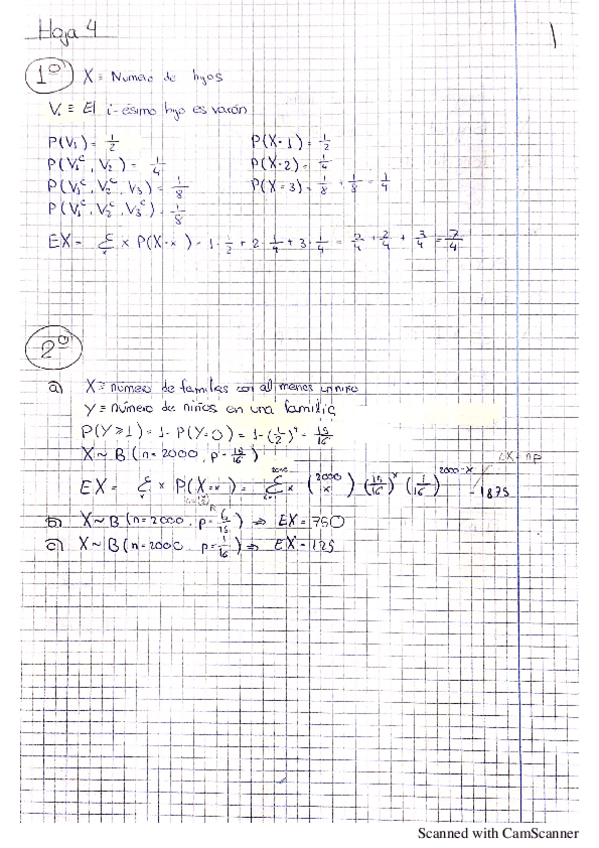 Hoja 4
1
1º) X ≡ Numero de hijos
Vi ≡ El i-ésimo hijo es varón
P(V₁) = 1/2    P(X=1) = 1/2
P(V₁ᶜ, V₂) = 1/4    P(X=2) = 1/4
P(V₁ᶜ, V₂ᶜ, V₃) = 1/8    P(X=3) = 1/8 + 1/8 = 1/4
P(V₁ᶜ, V₂ᶜ, V₃ᶜ) = 1/8
EX = Σₓ x P(X=x) = 1·1/2 + 2·1/4 + 3·1/4 = 2/4 + 2/4 + 3/4 = 7/4
2º)
a) X ≡ número de familias con al menos un niño
Y ≡ número de niños en una familia
P(Y≥1) = 1 - P(Y=0) = 1 - (1/2)⁴ = 15/16
X ~ B(n=2000, p=15/16)
EX = np
EX = Σₓ x P(X=x) = Σ x (2000 x) (15/16)ˣ (1/16)²⁰⁰⁰⁻ˣ = 1875
b) X ~ B(n=2000, p=6/16) ⇒ EX = 750
c) X ~ B(n=2000, p=1/16) ⇒ EX = 125
Scanned with CamScanner